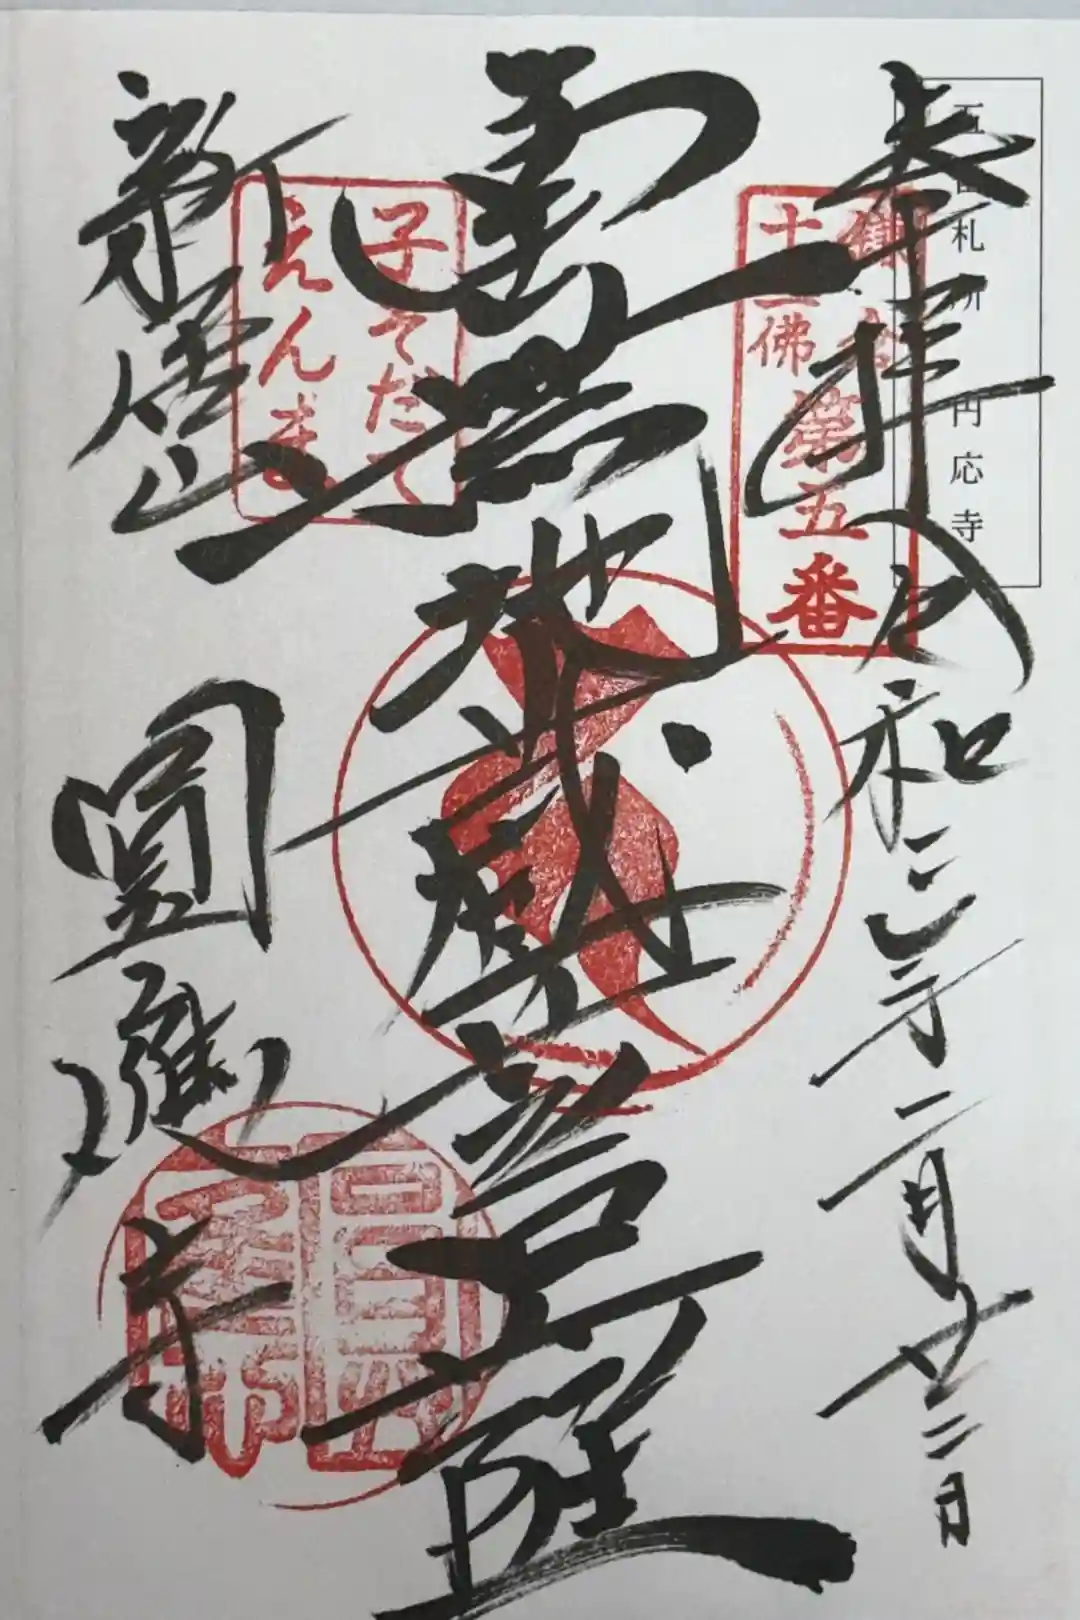 五番札所　円応寺
奉拝　令和二年二月廿二日
鎌倉
十三佛
第五番
地蔵菩薩
子そだて
えんま
新居山　圓應寺